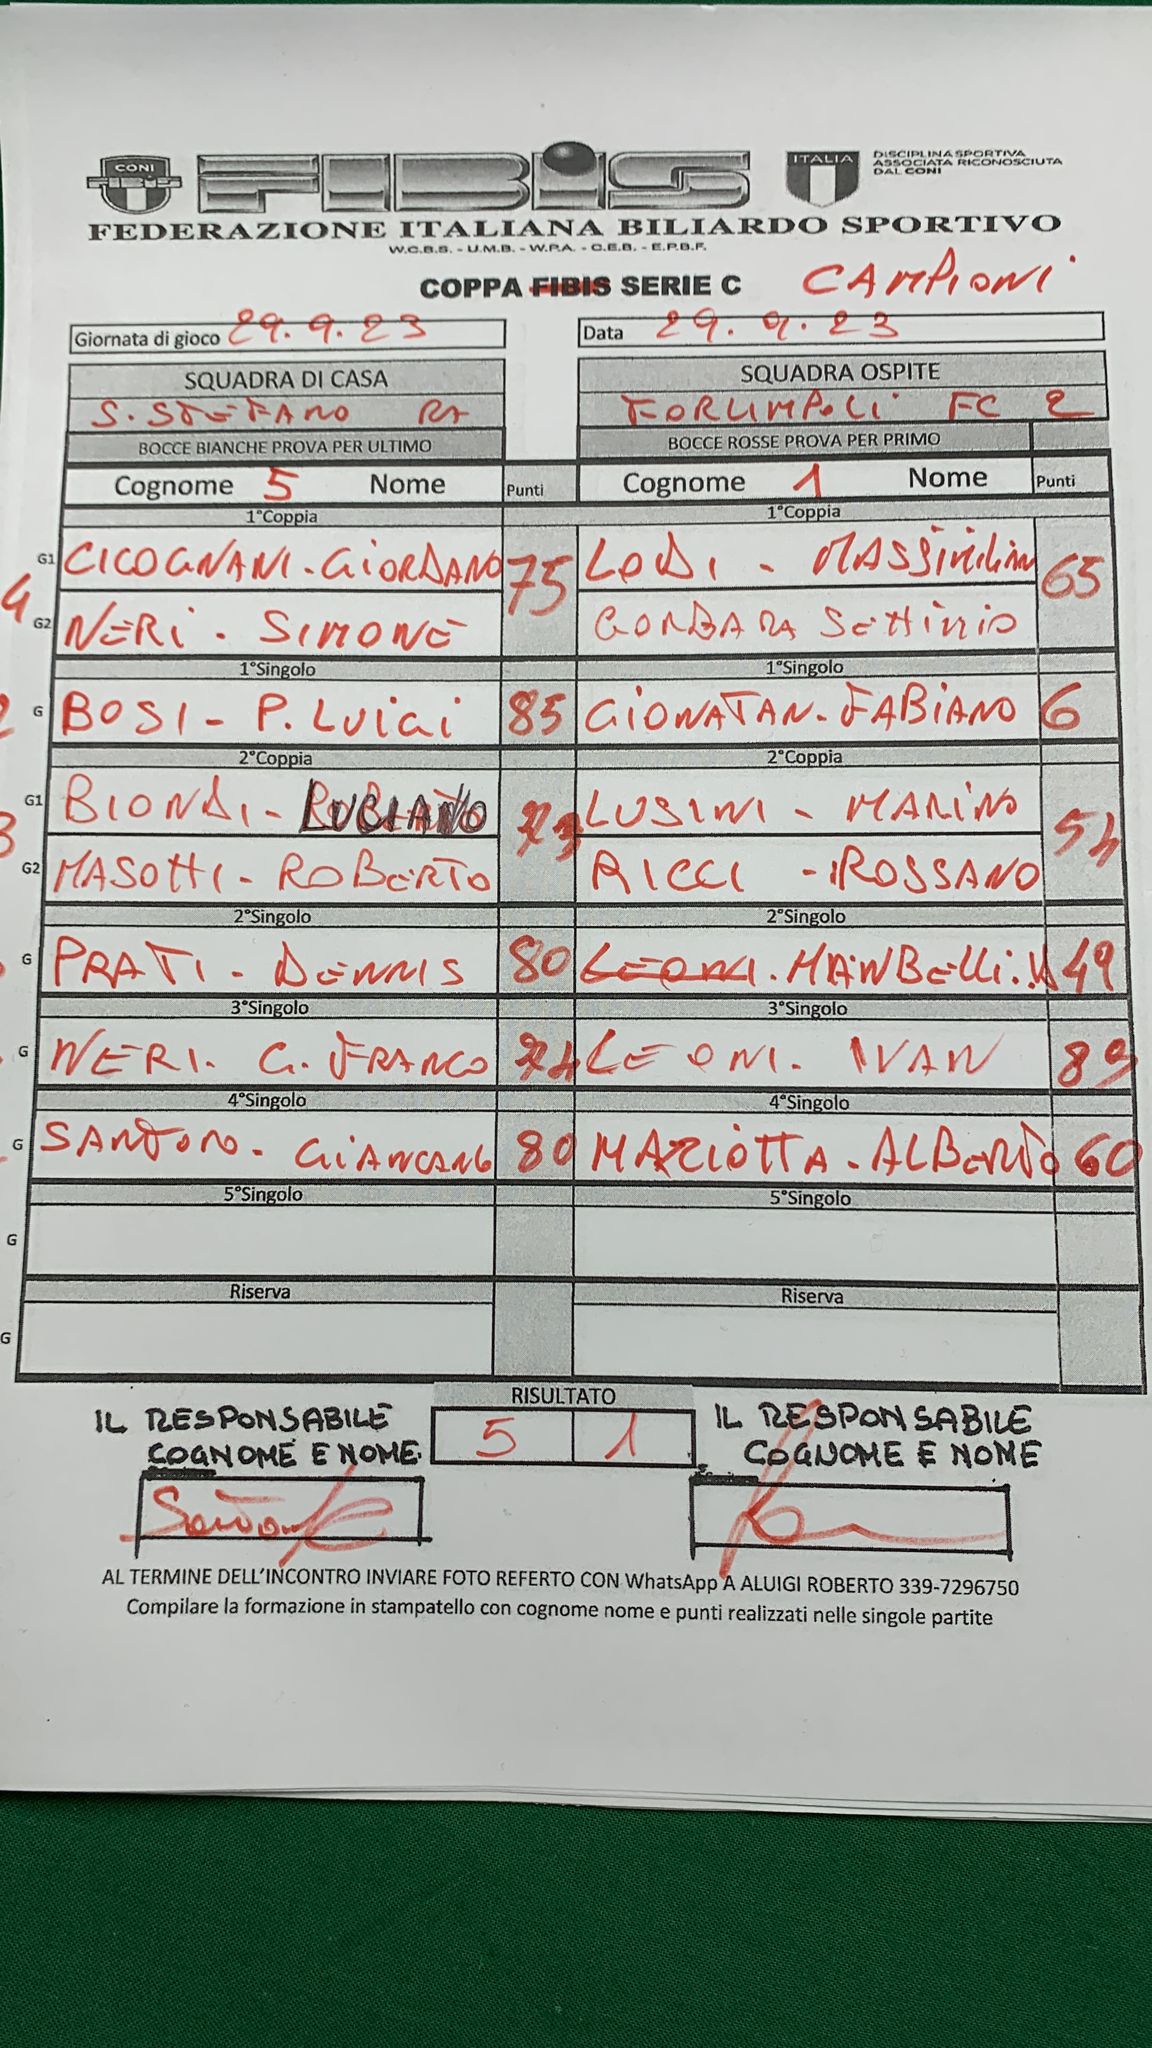 CONI
FIBIS
ITALIA
DISCIPLINA SPORTIVA
ASSOCIATA RICONOSCIUTA
DAL CONI
FEDERAZIONE ITALIANA BILIARDO SPORTIVO
W.C.B.S. - U.M.B. - W.P.A. - C.E.B. - E.P.B.F.
COPPA FIBIS SERIE C CAMPIONI
Giornata di gioco 29.9.23 Data 29.9.23
SQUADRA DI CASA SQUADRA OSPITE
S. STEFANO RA FORLIMPOLI FC 2
BOCCE BIANCHE PROVA PER ULTIMO BOCCE ROSSE PROVA PER PRIMO
Cognome 5 Nome Punti Cognome 1 Nome Punti
1°Coppia 1°Coppia
G1 CICOGNANI - GIORDANO 75 LODI - 65
G2 NERI - SIMONE
1°Singolo 1°Singolo
G BOSI - P. LUIGI 85 GIONATAN - FABIANO 6
2°Coppia 2°Coppia
G1 BIONDI - LUCIANO 73 LUSINI - MARINO 54
G2 MASOTTI - ROBERTO RICCI - ROSSANO
2°Singolo 2°Singolo
G PRATI - DENNIS 80 LEONI. 49
3°Singolo 3°Singolo
G NERI. G. FRANCO 74 LEONI. IVAN 89
4°Singolo 4°Singolo
G SANTORO - GIANCARLO 80 MAZIOTTA - ALBERTO 60
5°Singolo 5°Singolo
G
Riserva Riserva
G
RISULTATO
5 1
IL RESPONSABILE IL RESPONSABILE
COGNOME E NOME COGNOME E NOME
AL TERMINE DELL'INCONTRO INVIARE FOTO REFERTO CON WhatsApp A ALUIGI ROBERTO 339-7296750
Compilare la formazione in stampatello con cognome nome e punti realizzati nelle singole partite